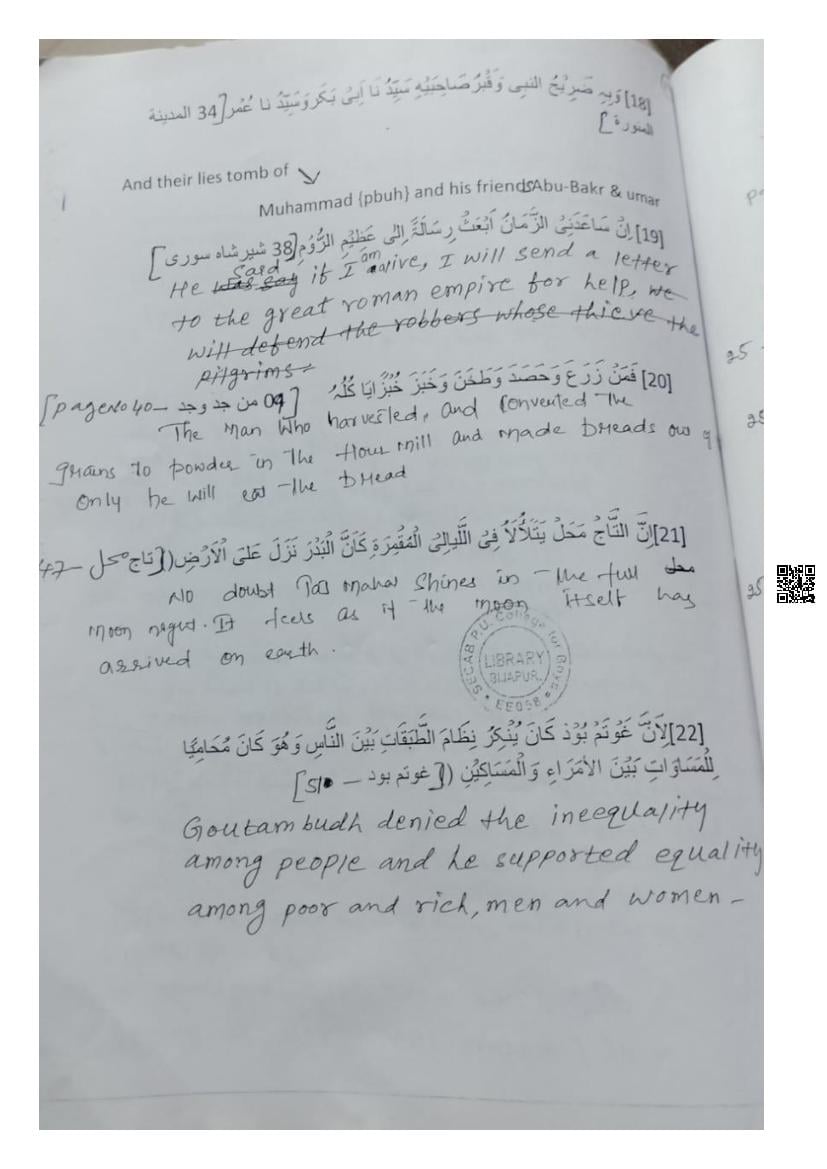 [18] وَبِهٖ ضَرِيْحُ النبى وَقُبْرُ صَاحِبَيْهِ سَيِّدُ نَا اَبِىْ بَكَر وَسَيِّدُ نا عُمْر [34 المدينة
المنورة]
And their lies tomb of
Muhammad {pbuh} and his friends Abu-Bakr & umar
[19] اِنْ سَاعَدَنِىْ الزَّمَانُ اَبْعَثُ رِسَالَةً اِلٰى عَظِيْمِ الرُّوْمِ [38 شیر شاہ سوری]
He was say said if I am alive, I will send a letter
to the great roman empire for help, we
will defend the robbers whose thieve the
pilgrims
[20] فَمَنْ زَرَعَ وَحَصَدَ وَطَحَنَ وَخَبَزَ خُبْزًا يَا كُلُهٗ
[page No 40 – من جد وجد 09]
The Man Who harvested, and Convented The
grains To powder in The flour Mill and made breads
only he will eat the bread
[21] اِنَّ التَّاجُ مَحَلْ يَتَلَأْلَأُ فِىْ اللَّيَالِىْ الْمُقْمِرَةِ كَاَنَّ الْبَدْرَ نَزَلَ عَلىَ الْاَرْضِ) [تاج محل – 47
محل
No doubt Taj Mahal Shines in the full
Moon night. It feels as if the moon itself has
arrived on earth.
SECAB P.U. College for Boys
LIBRARY
BIJAPUR.
EE058
[22] لِاَنَّ غَوتَمْ بُوْذ كَانَ يُنْكِرُ نِظَامَ الطَّبَقَاتِ بَيْنَ النَّاسِ وَهُوَ كَانَ مُحَامِيًّا
لِلْمَسَاوَاتِ بَيْنَ الأمَرَاءِ وَالْمَسَاكِيْنِ ([غوتم بود – 51]
Goutam budh denied the ineequality
among people and he supported equality
among poor and rich, men and women –